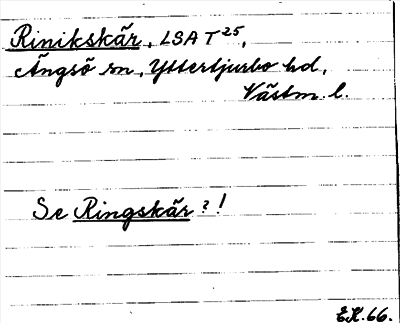 Rinikskär, LSA T 25,
Ängsö sn, Yttertjurbo hd,
Västm. l.
Se Ringskär ?!
EK. 66.